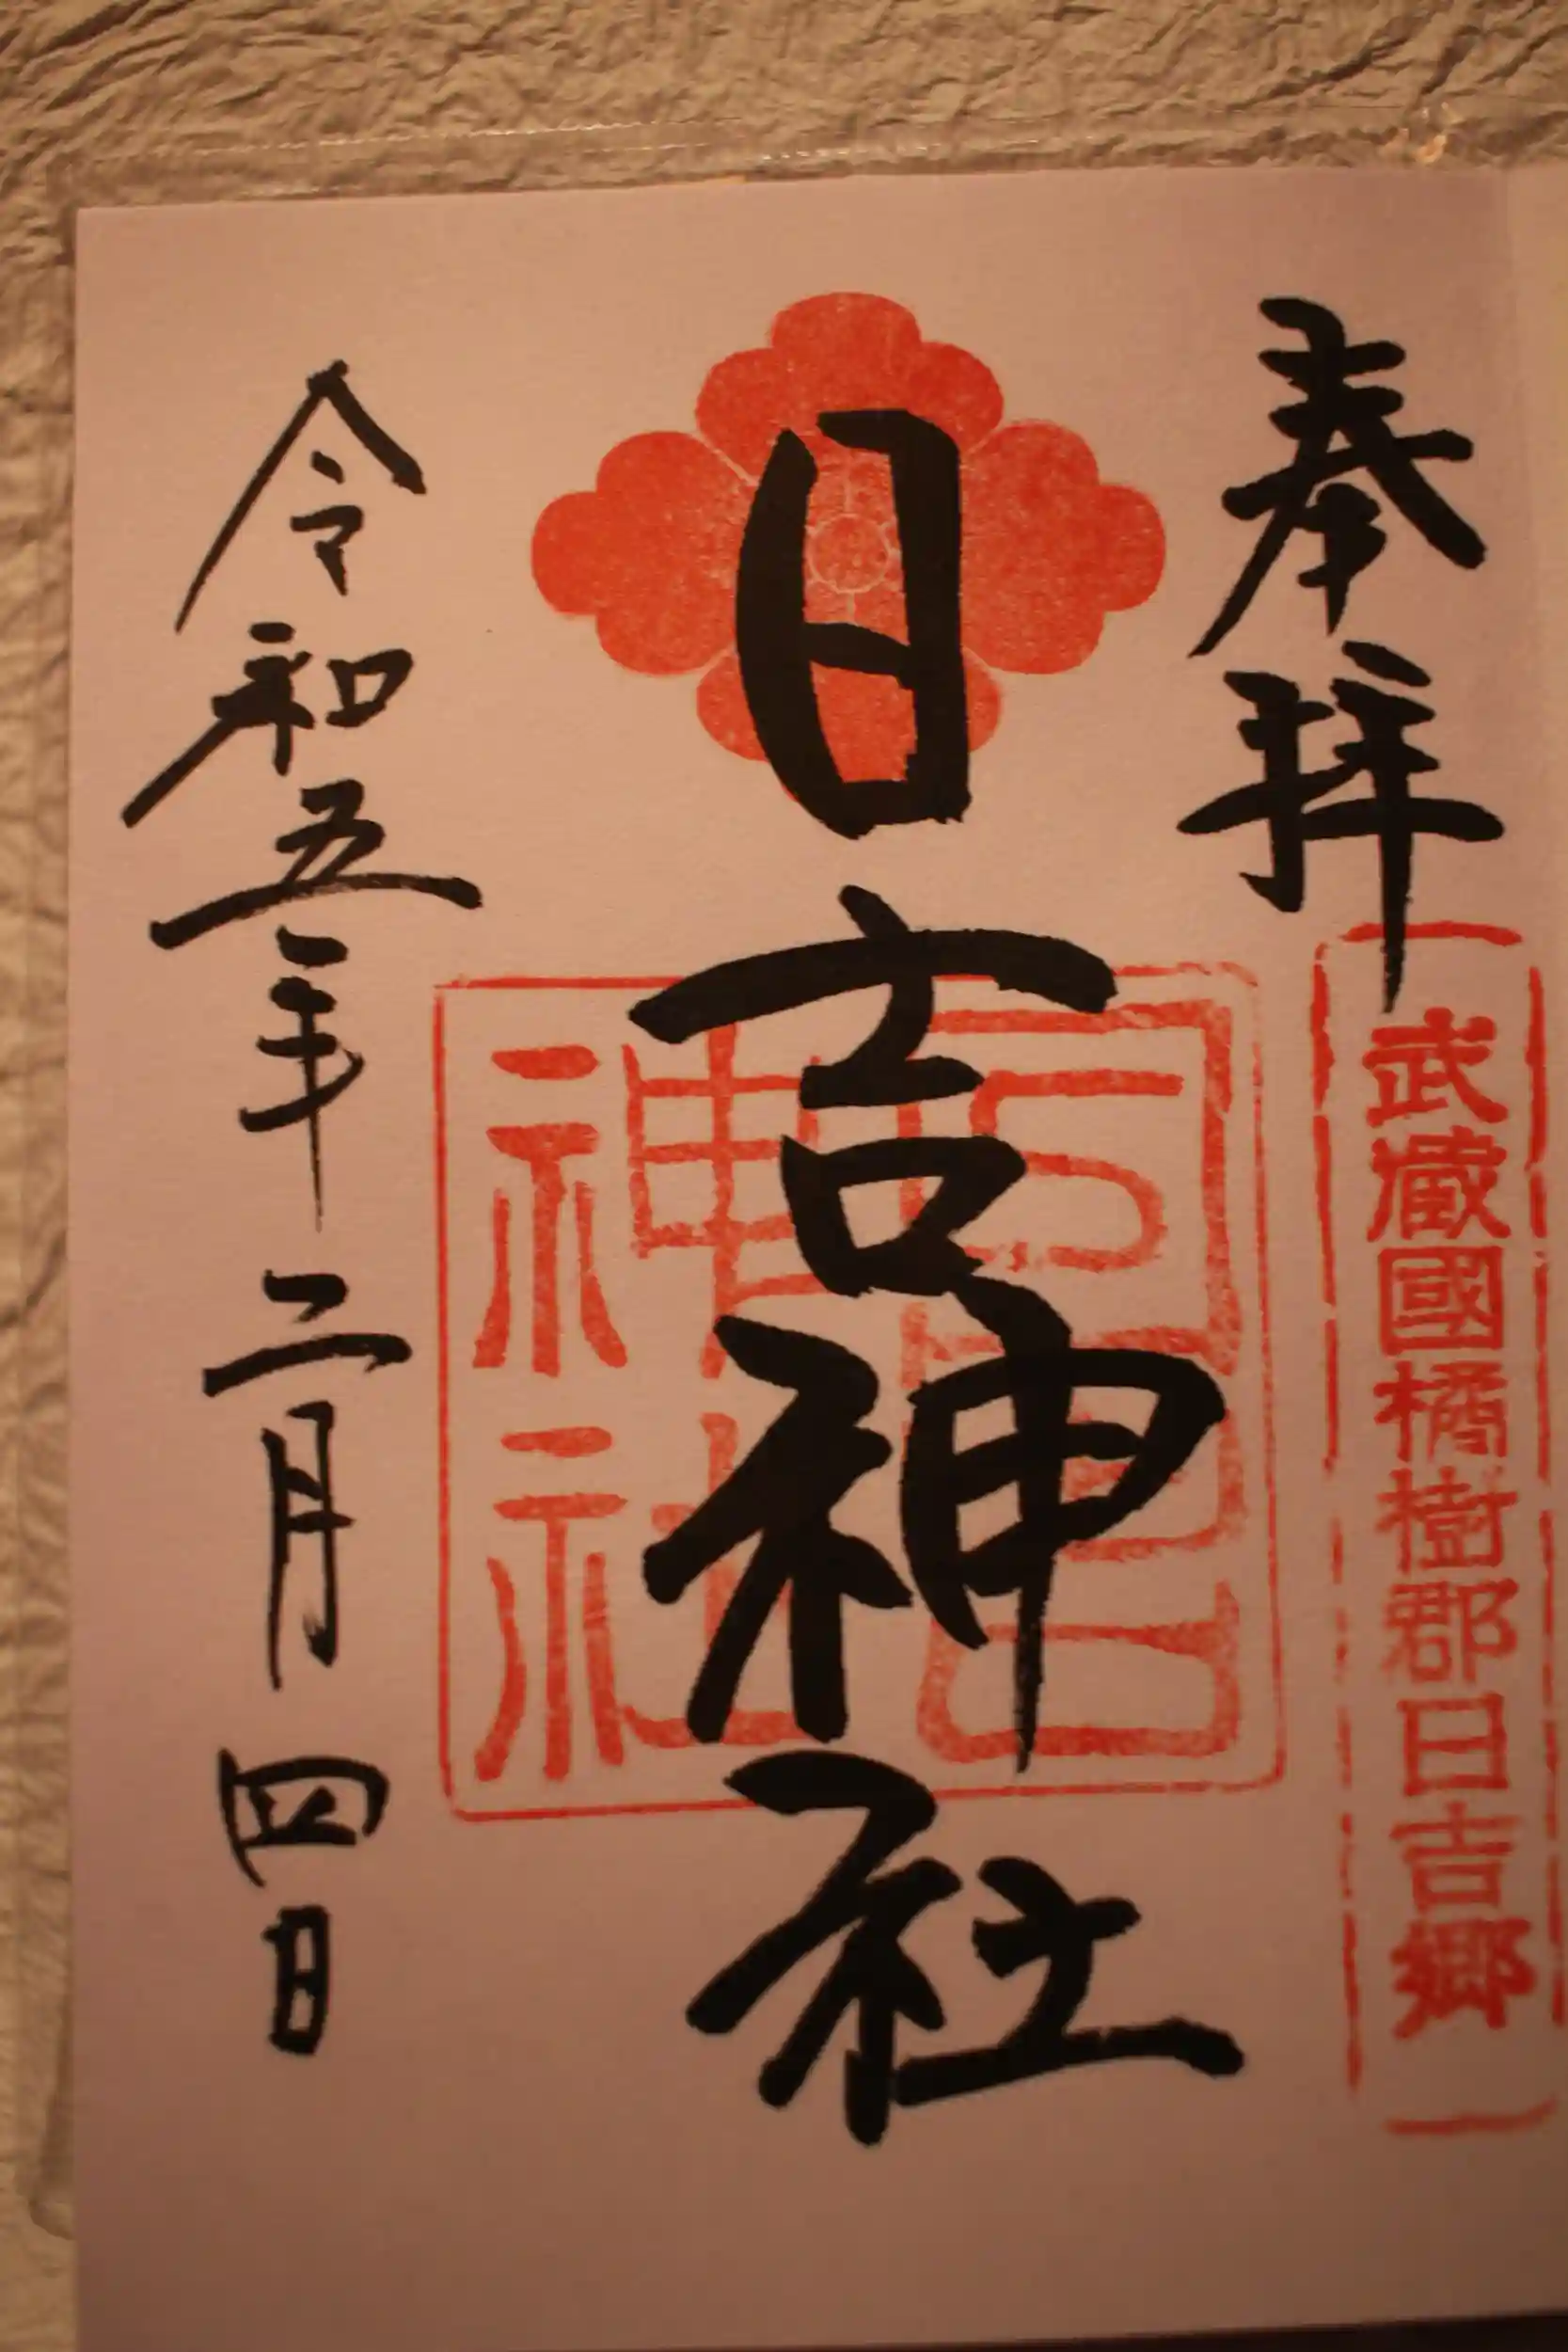 奉拝
武蔵國橘樹郡日吉郷
日吉神社
日吉神社
令和五年二月四日